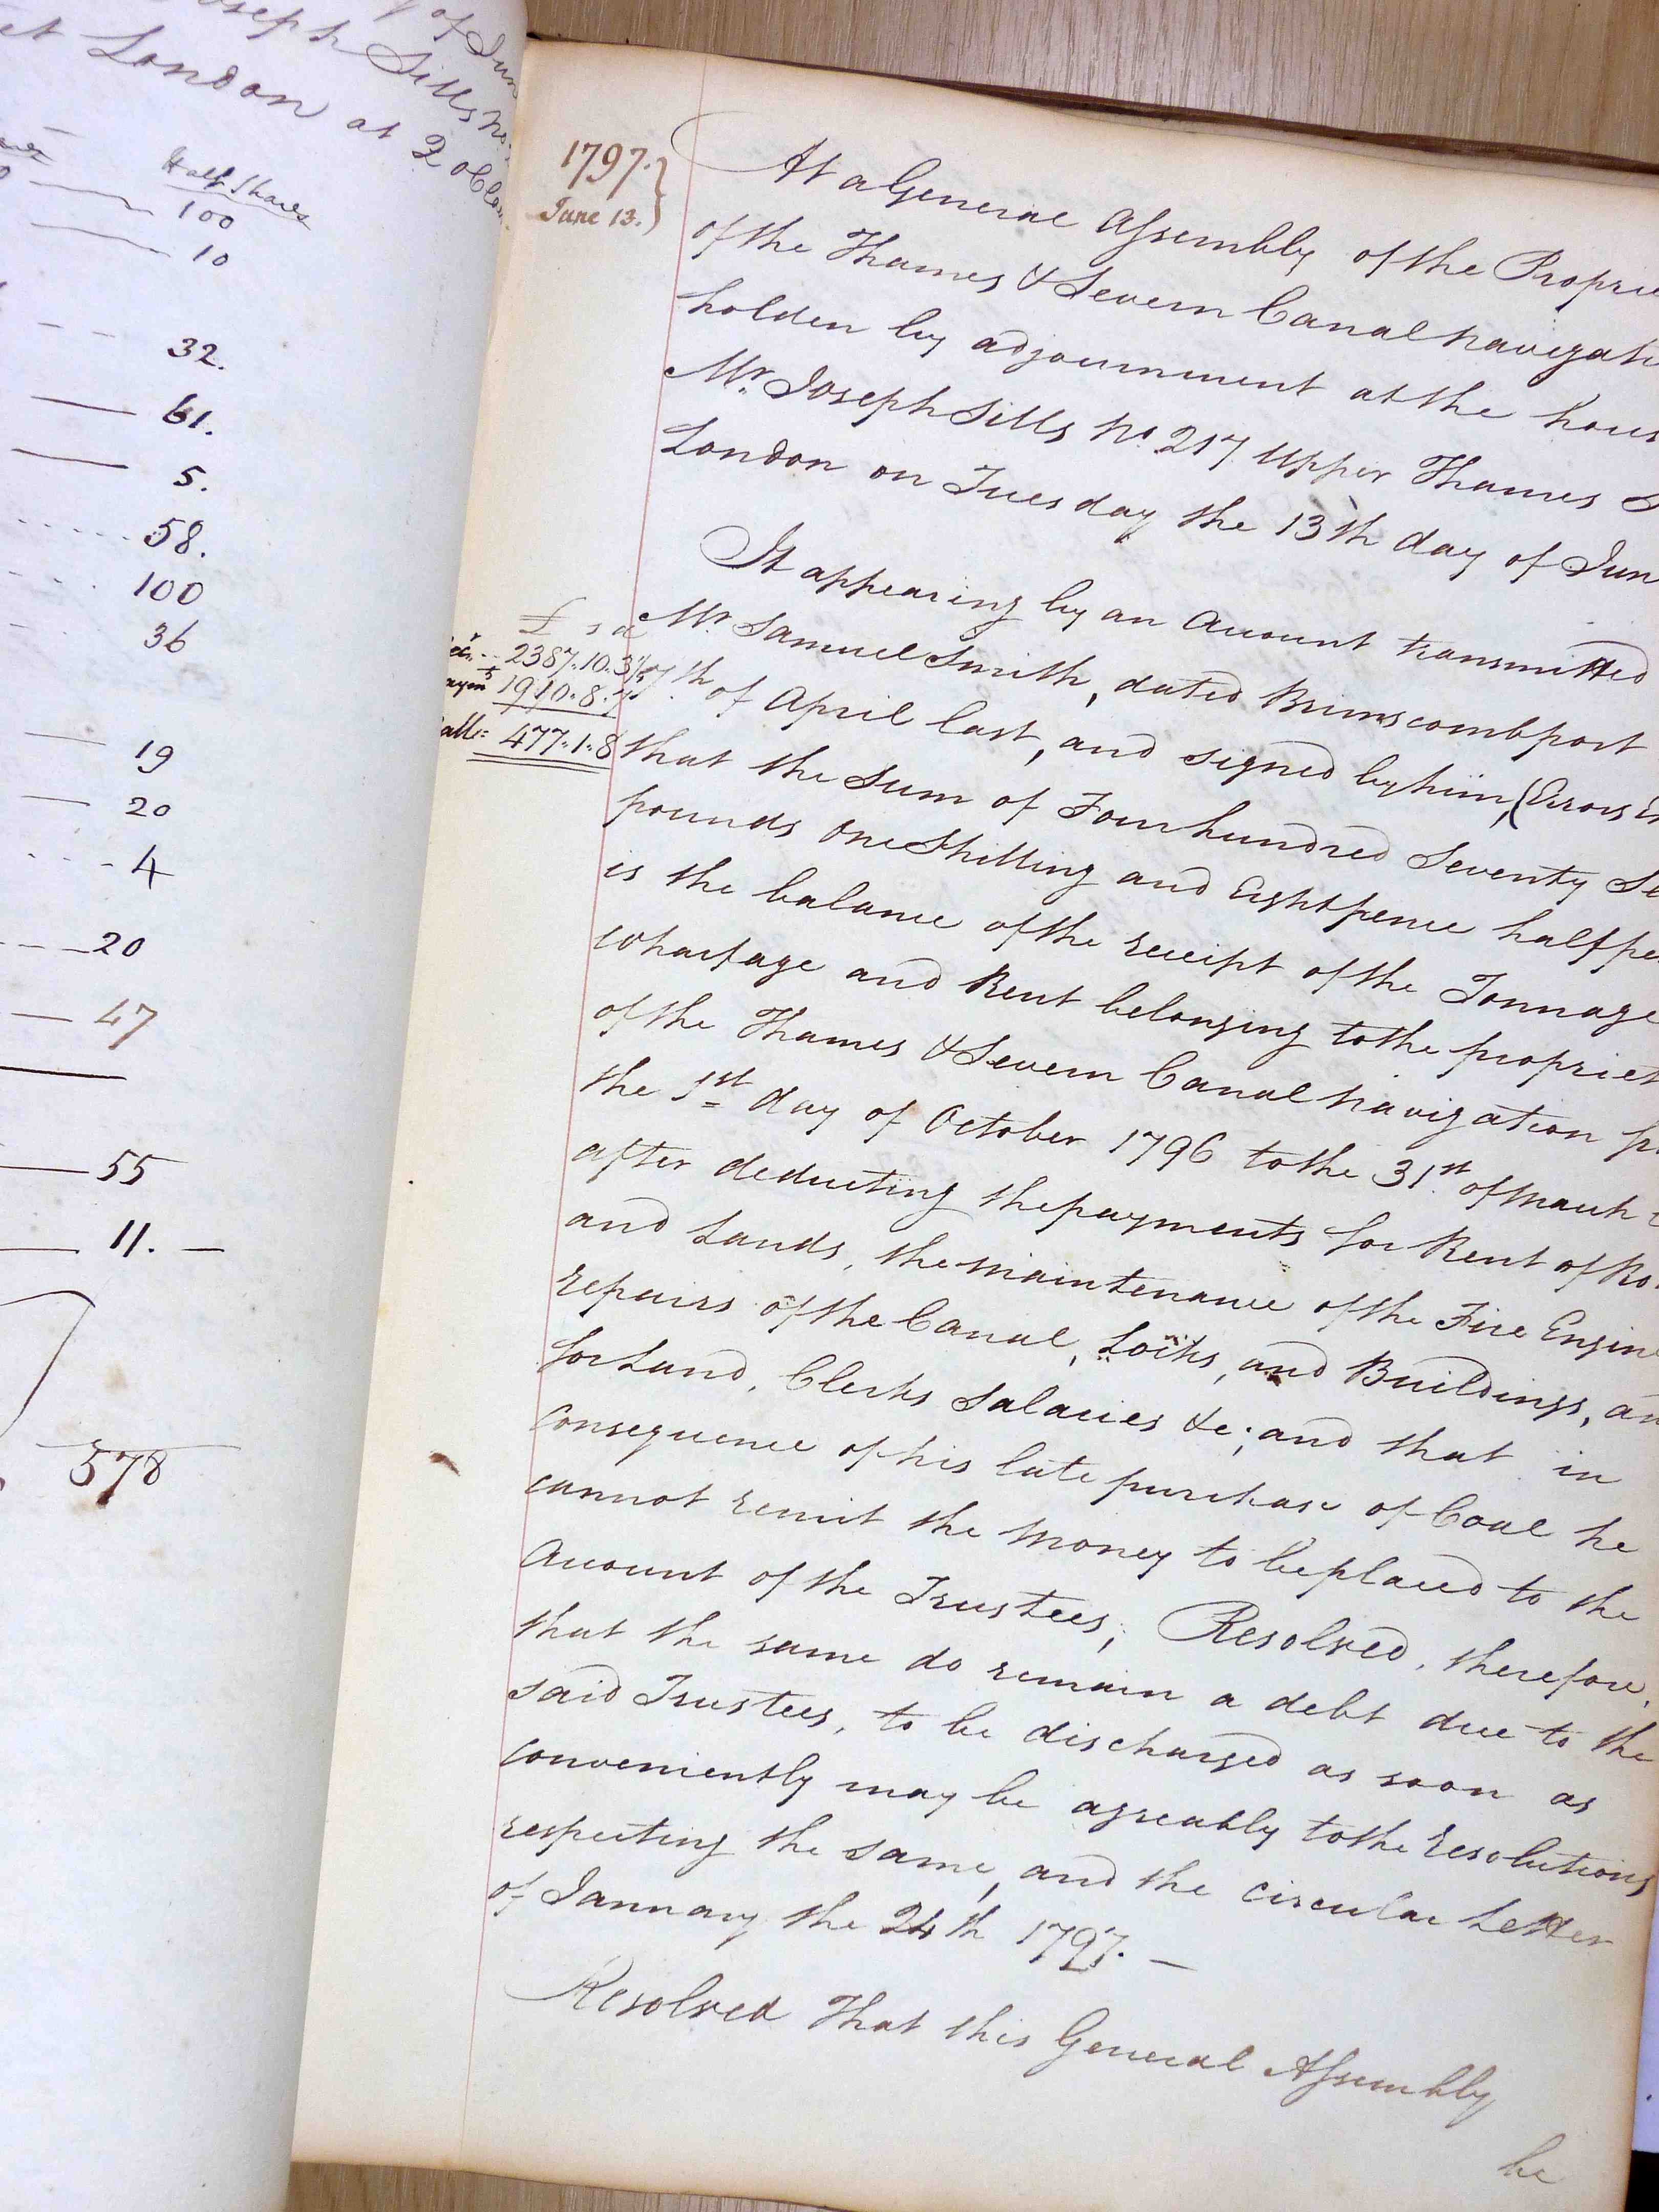 of Jun
Joseph Sills No.
London at 2 oClo
Half Shares
100
10
32.
61.
5.
58.
100
36
19
20
4
20
47
55
11. —
578
1797.
June 13.
At a General Assembly of the Proprie
of the Thames & Severn Canal navigati
holden by adjournment at the hous
Mr. Joseph Sills No. 217 Upper Thames S
London on Tuesday the 13th day of Jun
It appearing by an Account transmitted
£ s d
2387.10.3½
1910.8.7
477.1.8
Mr. Samuel Smith, dated Brimscombport
7th of April last, and signed by him, (Errors E
that the Sum of Four hundred Seventy Se
pounds One Shilling and Eightpence halfpe
is the balance of the receipt of the Tonnage
wharfage and Rent belonging to the propriet
of the Thames & Severn Canal navigation f
the 1st day of October 1796 to the 31st of March
after deducting the payments for Rent of Ro
and Lands, the maintenance of the Fire Engine
repairs of the Canal, Locks, and Buildings, an
for Land, Clerks Salaries &c; and that in
consequence of his late purchase of Coal he
cannot remit the Money to be placed to the
Account of the Trustees; Resolved, therefore,
that the same do remain a debt due to the
said Trustees, to be discharged as soon as
conveniently may be agreably to the resolutions
respecting the same, and the circular Letter
of January the 24th 1797. —
Resolved That this General Assembly
be